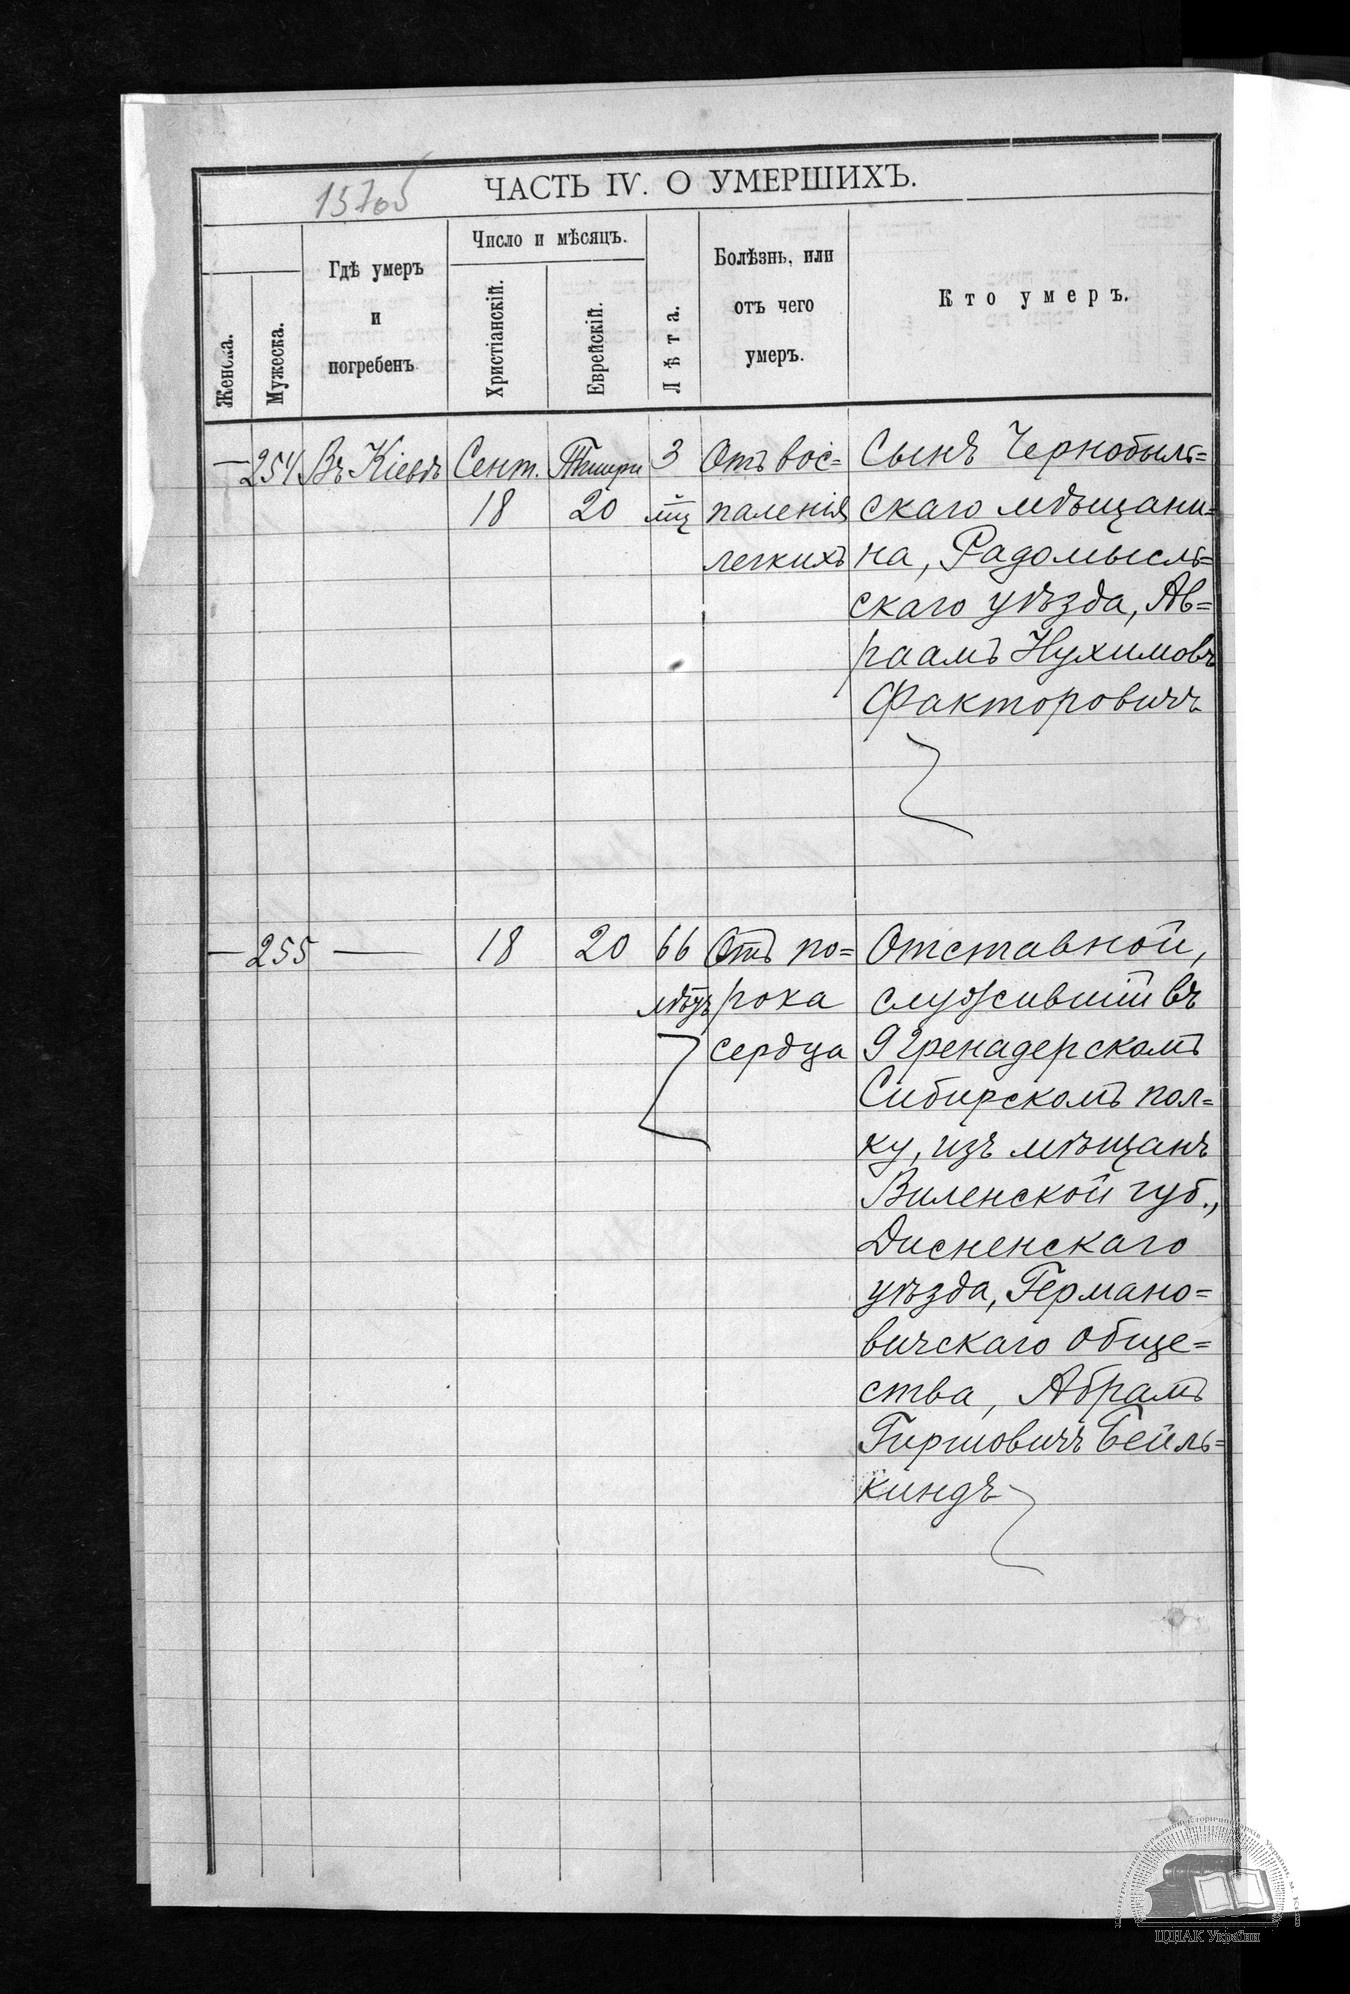 157об
ЧАСТЬ IV. О УМЕРШИХЪ.
Женска.
Мужеска.
Гдѣ умеръ
и
погребенъ
Число и мѣсяцъ.
Христіанскій.
Еврейскій.
Лѣта.
Болѣзнь, или
отъ чего
умеръ.
Кто умеръ.
— 254 Въ Кіевѣ Сент. Тишри 3 Отъ вос= Сынъ Чернобыль=
18 20 мц паленія скаго мѣщани=
легкихъ на, Радомысль=
скаго уѣзда, Ав=
раамъ Нухимовъ
Факторовичъ
— 255 — 18 20 66 Отъ по= Отставной,
лѣтъ рока служившій въ
сердца 9 Гренадерскомъ
Сибирскомъ пол=
ку, изъ мѣщанъ
Виленской губ.,
Дисненскаго
уѣзда, Германо=
вичскаго обще=
ства, Абрамъ
Гиршовичъ Бейль=
киндъ
ЦДІАК України